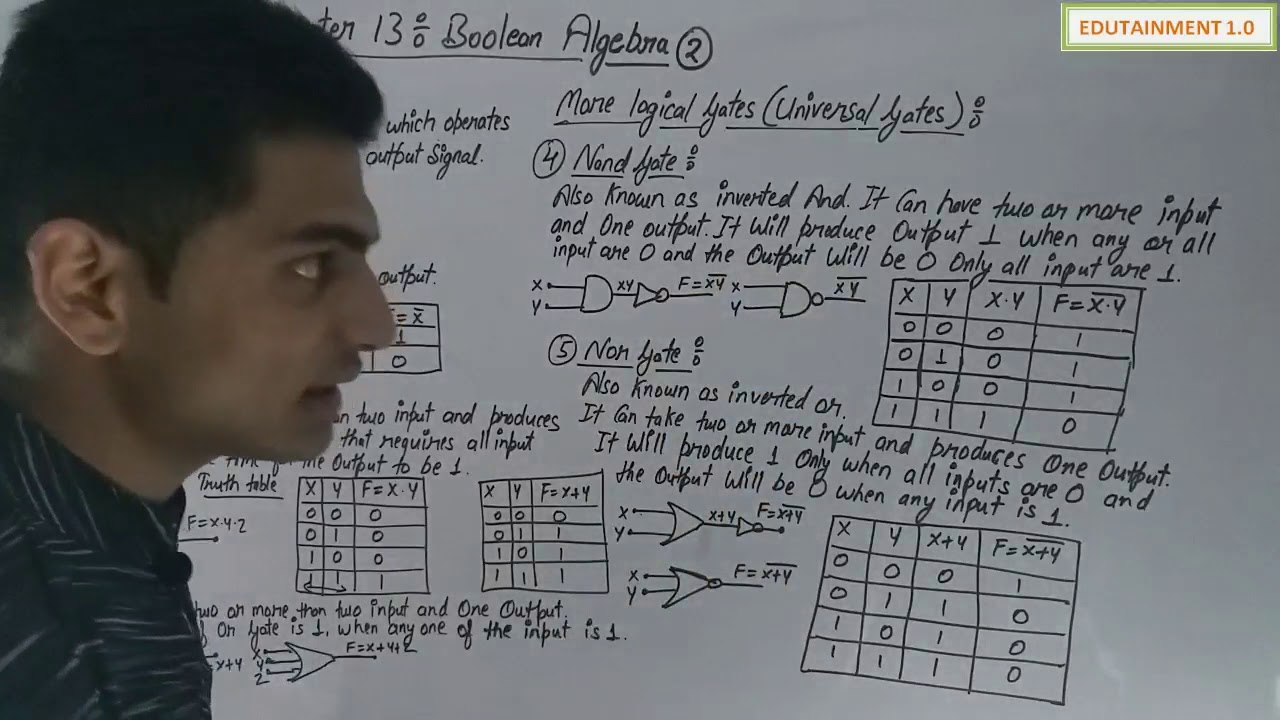 ter 13: Boolean Algebra ②
EDUTAINMENT 1.0
which operates
output Signal.
output.
F=x̅
1
0
two input and produces
that requires all input
time for the Output to be 1.
Truth table
F=x·y·z
X Y F=X·Y
0 0 0
0 1 0
1 0 0
1 1 1
X Y F=x+y
0 0 0
0 1 1
1 0 1
1 1 1
two or more than two input and One Output.
Or gate is 1, when any one of the input is 1.
x+y
X
Y
Z
F=x+y+z
More logical Gates (Universal Gates) :
④ Nand Gate :
Also Known as inverted And. It Can have two or more input
and One output. It Will produce Output 1 when any or all
input are 0 and the Output Will be 0 Only all input are 1.
X
Y
xy
F=x̅y̅
X
Y
x̅y̅
X Y X·Y F=X̅·Y̅
0 0 0 1
0 1 0 1
1 0 0 1
1 1 1 0
⑤ Nor Gate :
Also Known as inverted or.
It Can take two or more input and produces One Output.
It Will produce 1 Only when all inputs are 0 and
the Output Will be 0 when any input is 1.
X
Y
x+y
F=x̅+̅y̅
X
Y
F=x̅+̅y̅
X Y X+Y F=X̅+̅Y̅
0 0 0 1
0 1 1 0
1 0 1 0
1 1 1 0